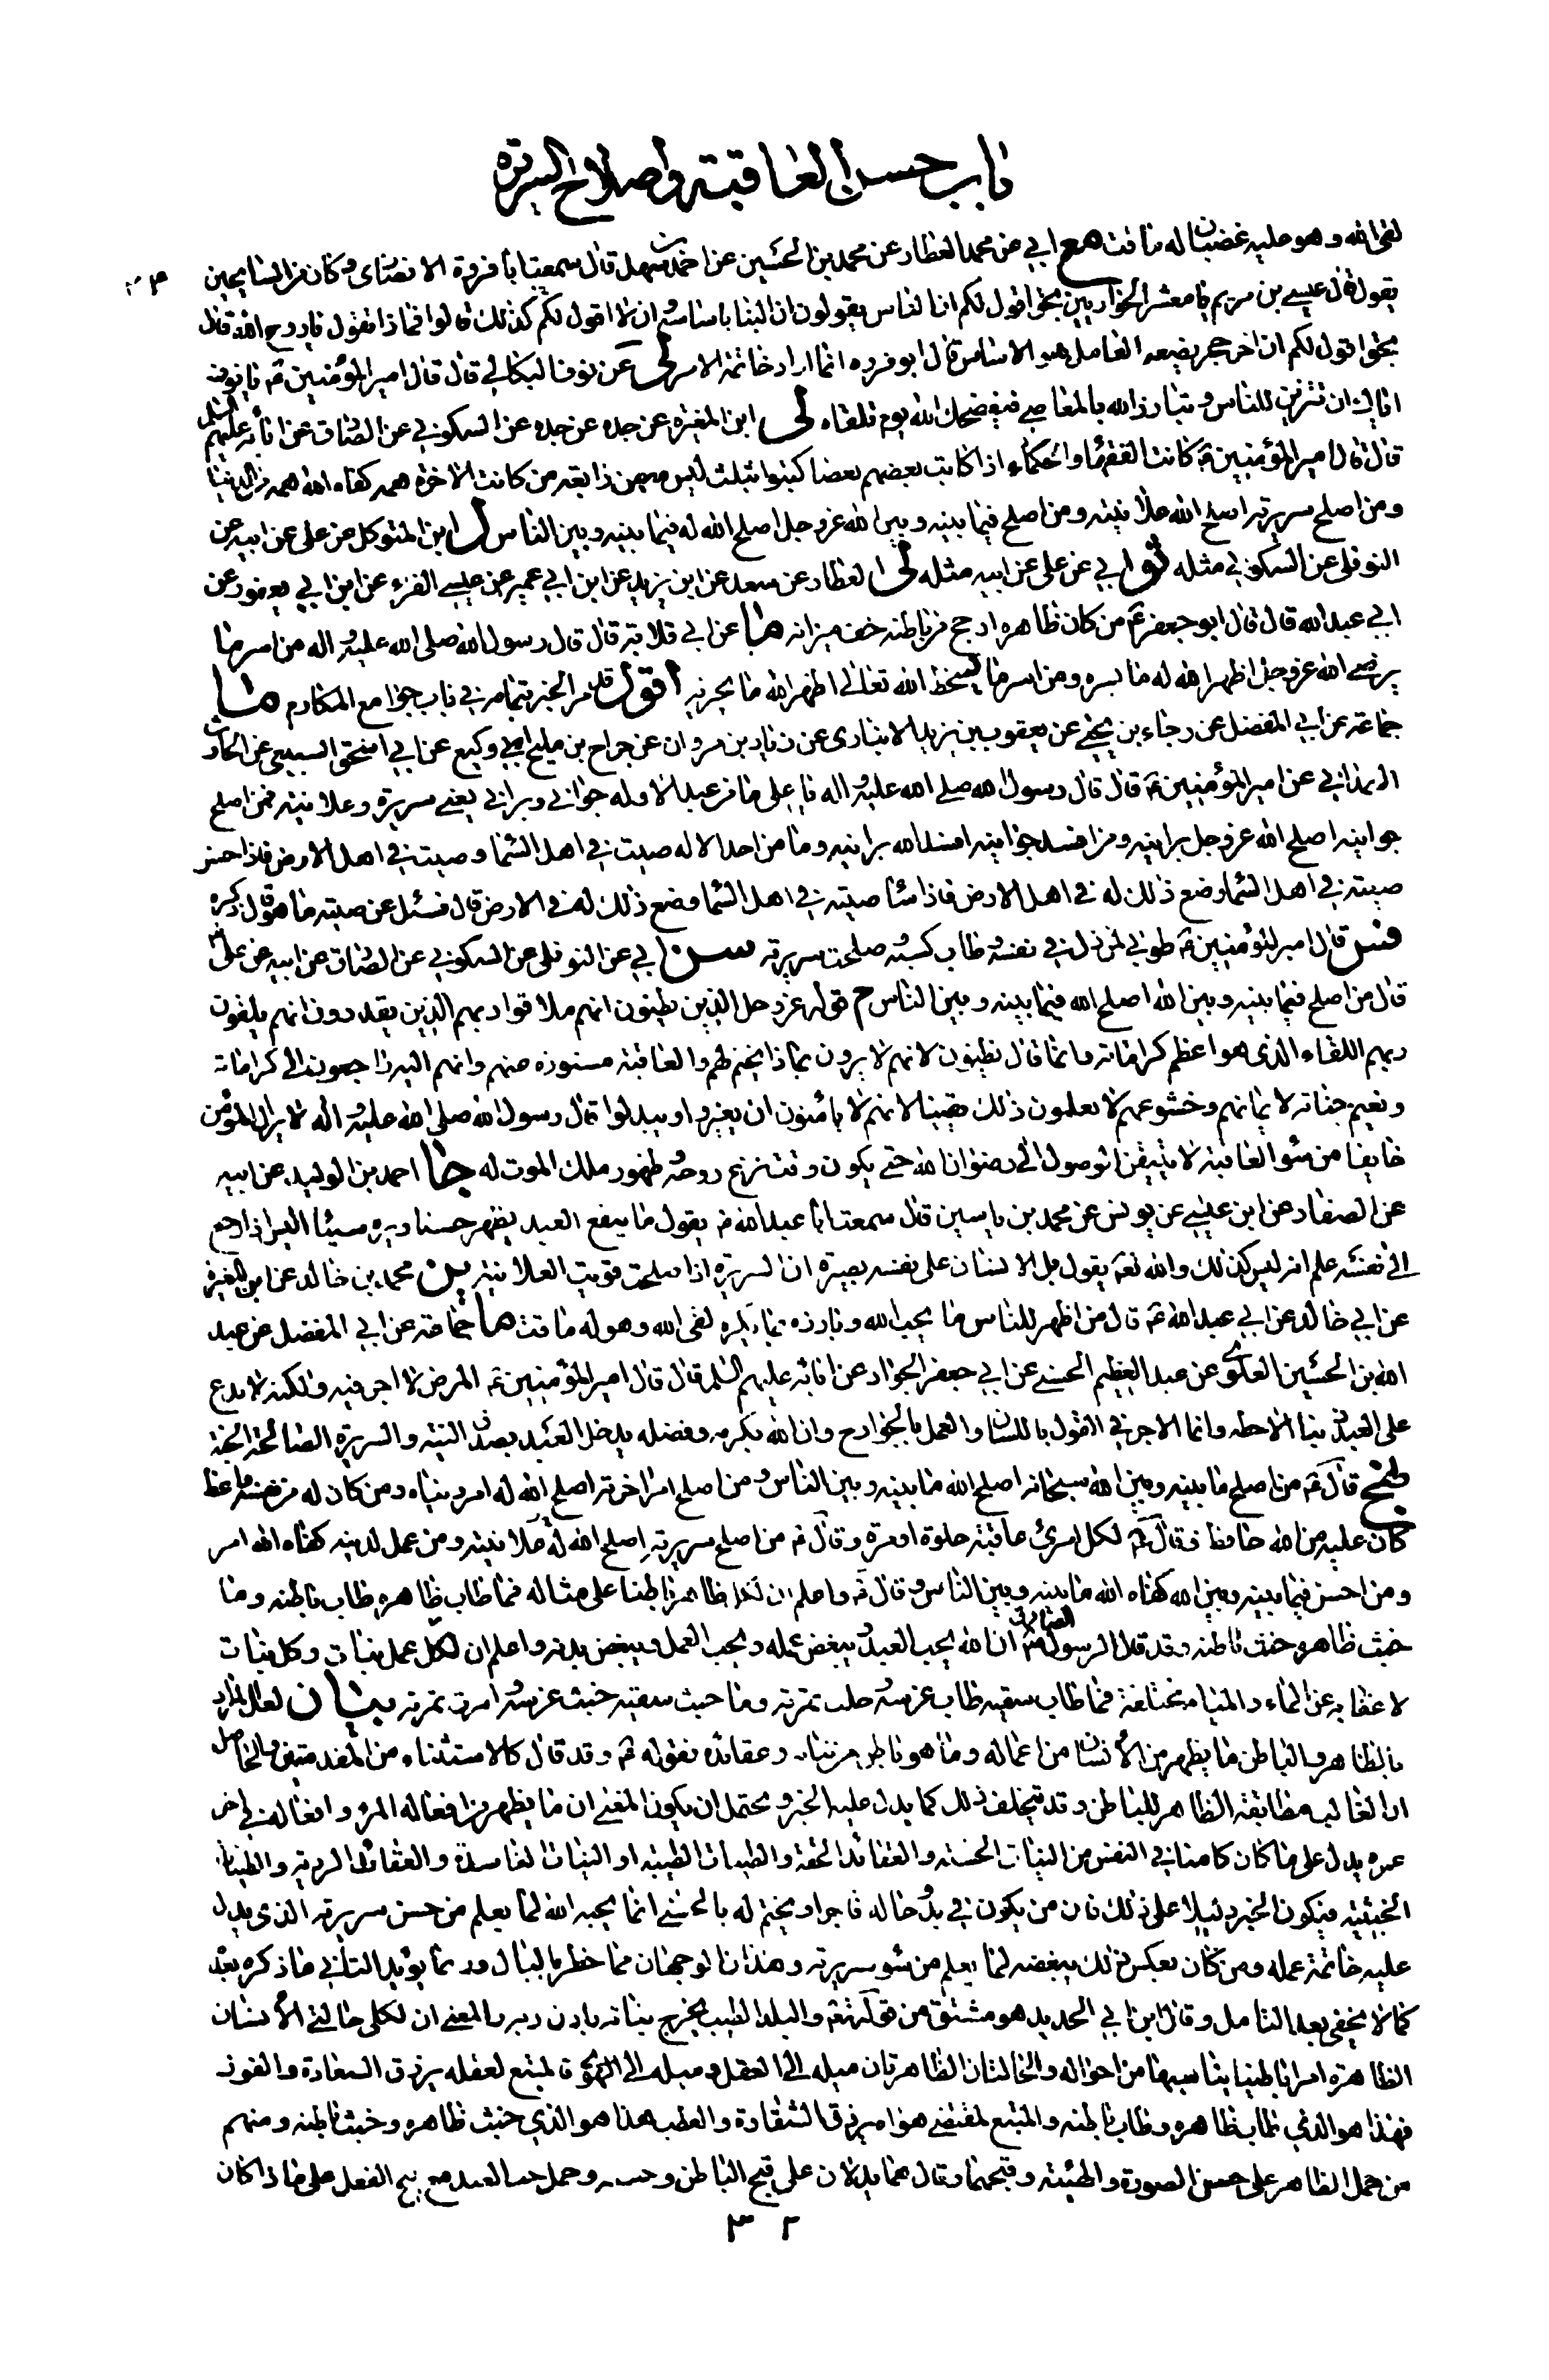 باب حسن العاقبة واصلاح السريرة
لقى الله وهو عليه غضبان له ماقت مع ابي عن محمد العطار عن محمد بن الحسين عن احمد بن سهل قال سمعت ابا فروة الانصاري وكان من السايحين
يقول قال عيسى بن مريم يا معشر الحواريين بحق اقول لكم ان الناس يقولون ان البناء باساسه وان لا اقول لكم كذلك قالوا فماذا تقول يا روح الله قال
بحق اقول لكم ان اخر حجر يضعه العامل هو الاساس قال ابو فروه انما اراد خاتمة الامر لى عن نوف البكالي قال قال امير المؤمنين ع يا نوف
اياك ان تتزين للناس وتبارز الله بالمعاصي فيفضحك الله يوم تلقاه لى ابن المغيرة عن جده عن جده عن السكوني عن الصادق عن ابائه عليهم السلم
قال قال امير المؤمنين ع كانت الفقهاء والحكماء اذا كاتب بعضهم بعضا كتبوا بثلث ليس معهن رابعة من كانت الاخرة همه كفاه الله همه من الدنيا
ومن اصلح سريرته اصلح الله علانيته ومن اصلح فيما بينه وبين الله عز وجل اصلح الله له فيما بينه وبين الناس ل ابن المتوكل عن على عن ابيه عن
النوفلى عن السكوني مثله ثو ابي عن على عن ابيه مثله لى العطار عن سعد عن ابن يزيد عن ابن ابي عمير عن عيسى الفراء عن ابن ابي يعفور عن
ابي عبد الله قال قال ابو جعفر ع من كان ظاهره ارجح من باطنه خف ميزانه ما عن ابي قلابة قال قال رسول الله صلى الله عليه واله من اسر ما
يرضى الله عز وجل اظهر الله له ما يسره ومن اسر ما يسخط الله تعالى اظهر الله ما يحزنه اقول قد مر الخبر بتمامه في باب جوامع المكارم ما
جماعة عن ابي المفضل عن رجاء بن يحيى عن يعقوب بن يزيد الانبارى عن زياد بن مروان عن جراح بن مليح ابي وكيع عن ابي اسحق السبيعي عن الحارث
الهمداني عن امير المؤمنين ع قال قال رسول الله صلى الله عليه واله يا على ما من عبد الا وله جواني وبراني يعني سريرة وعلانية فمن اصلح
جوانيه اصلح الله عز وجل برانيه ومن افسد جوانيه افسد الله برانيه وما من احد الا له صيت في اهل السماء وصيت في اهل الارض فاذا حسن
صيته في اهل السماء وضع ذلك له في اهل الارض فاذا ساء صيته في اهل السماء وضع ذلك له في الارض قال فسئل عن صيته ما هو قال ذكره
قال امير المؤمنين ع طوبى لمن ذل في نفسه وطاب كسبه وصلحت سريرته سن ابي عن النوفلى عن السكوني عن الصادق عن ابيه عن على
قال من اصلح فيما بينه وبين الله اصلح الله فيما بينه وبين الناس م قوله عز وجل الذين يظنون انهم ملاقوا ربهم الذين يقدرون انهم يلقون
ربهم اللقاء الذى هو اعظم كراماته وانما قال يظنون لانهم لا يرون بماذا يختم لهم والعاقبة مستورة عنهم وانهم اليه راجعون الى كراماته
ونعيم جناته لايمانهم وخشوعهم لا يعلمون ذلك يقينا لانهم لا يأمنون ان يغيروا ويبدلوا قال رسول الله صلى الله عليه واله لا يزال المؤمن
خايفا من سوء العاقبة لا يتيقن الوصول الى رضوان الله حتى يكون وقت نزع روحه وظهور ملك الموت له جا احمد بن الوليد عن ابيه
عن الصفار عن ابن عيسى عن يونس عن محمد بن ياسين قال سمعت ابا عبد الله ع يقول ما ينفع العبد يظهر حسنا ويسر سيئا اليس اذا رجع
الى نفسه علم انه ليس كذلك والله تعم يقول بل الانسان على نفسه بصيرة ان السريرة اذا صلحت قويت العلانية ين محمد بن خالد عن ابن المغيرة
عن ابي خالد عن ابي عبد الله ع قال من اظهر للناس ما يحب الله وبارزه بما يكره لقى الله وهو له ماقت ما جماعة عن ابي المفضل عن عبيد
الله بن الحسين العلوى عن عبد العظيم الحسنى عن ابي جعفر الجواد عن ابائه عليهم السلم قال قال امير المؤمنين ع المرض لا اجر فيه ولكنه لا يدع
على العبد ذنبا الا حطه وانما الاجر في القول باللسان والعمل بالجوارح وان الله بكرمه وفضله يدخل العبد بصدق النية والسريرة الصالحة الجنة
قال ع من اصلح ما بينه وبين الله سبحانه اصلح الله ما بينه وبين الناس ومن اصلح امر اخرته اصلح الله له امر دنياه ومن كان له من نفسه واعظ
كان عليه من الله حافظ وقال ع لكل امرئ عاقبة حلوة او مرة وقال ع من اصلح سريرته اصلح الله له علانيته ومن عمل لدينه كفاه الله امر
ومن احسن فيما بينه وبين الله كفاه الله ما بينه وبين الناس وقال ع واعلم ان لكل ظاهر باطنا على مثاله فما طاب ظاهره طاب باطنه وما
خبث ظاهره خبث باطنه وقد قال الرسول الصادق ص ان الله يحب العبد ويبغض عمله ويحب العمل ويبغض بدنه واعلم ان لكل عمل نبات وكل نبات
لا غنا به عن الماء والمياه مختلفة فما طاب سقيه طاب غرسه وحلت ثمرته وما خبث سقيه خبث غرسه وامرت ثمرته بيان لعل المراد
بالظاهر والباطن ما يظهر من الانسان من اعماله وما هو باطن من نياته وعقائده بقوله ع وقد قال كالاستثناء من المقدمتين والحاصل
ان الغالب مطابقة الظاهر للباطن وقد يتخلف ذلك كما يدل عليه الخبر ويحتمل ان يكون المعنى ان ما يظهر من افعال المرء وافعاله في اخر
عمره يدل على ما كان كامنا في النفس من النيات الحسنة والعقائد الحقة والطينات الطيبة او النيات الفاسدة والعقائد الردية والطينات
الخبيثة فيكون الخبر دليلا على ذلك فان من يكون في بدو حاله فاجرا ويختم له بالحسنى انما يحبه الله لما يعلم من حسن سريرته الذى يدل
عليه خاتمة عمله ومن كان بعكس ذلك يبغضه لما يعلم من سوء سريرته وهذان الوجهان مما خطر بالبال وربما يؤيد الثاني ما ذكره بعد
كما لا يخفى بعد التامل وقال ابن ابي الحديد هو مشتق من قوله تعم والبلد الطيب يخرج نباته باذن ربه والمعنى ان لكلى حالتى الانسان
الظاهرة امرا باطنيا يناسبها من احواله والحالتان الظاهرتان ميله الى العقل وميله الى الهوى فالمتبع لعقله يرزق السعادة والفوز
فهذا هو الذي طاب ظاهره وطاب باطنه والمتبع لمقتضى هواه يرزق الشقاوة والعطب هذا هو الذي خبث ظاهره وخبث باطنه ومنهم
من حمل الظاهر على حسن الصورة والهيئة وقبحهما وقال هما يدلان على قبح الباطن وحسنه وحمل حب العبد مع قبح الفعل على ما اذا كان